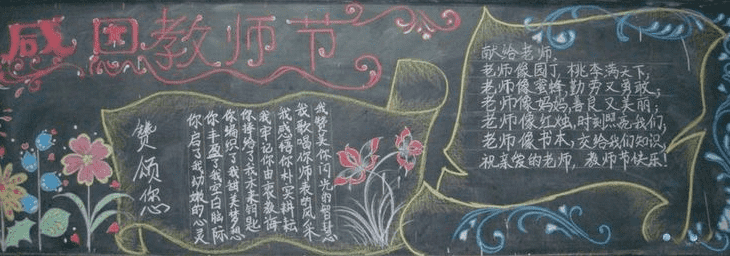 感恩教师节
赞颂您
我赞美你闪光的智慧
我歌唱你师表的风采
我感铭你朴实耕耘
我牢记你由衷教诲
你捧给了我未来钥匙
你编织了我甜美梦想
你丰盈了我空白脑际
你启了我幼嫩的心灵
献给老师
老师像园丁,桃李满天下;
老师像蜜蜂,勤劳又勇敢;
老师像妈妈,善良又美丽;
老师像红烛,时刻照亮我们;
老师像书本,交给我们知识,
祝亲爱的老师,教师节快乐!